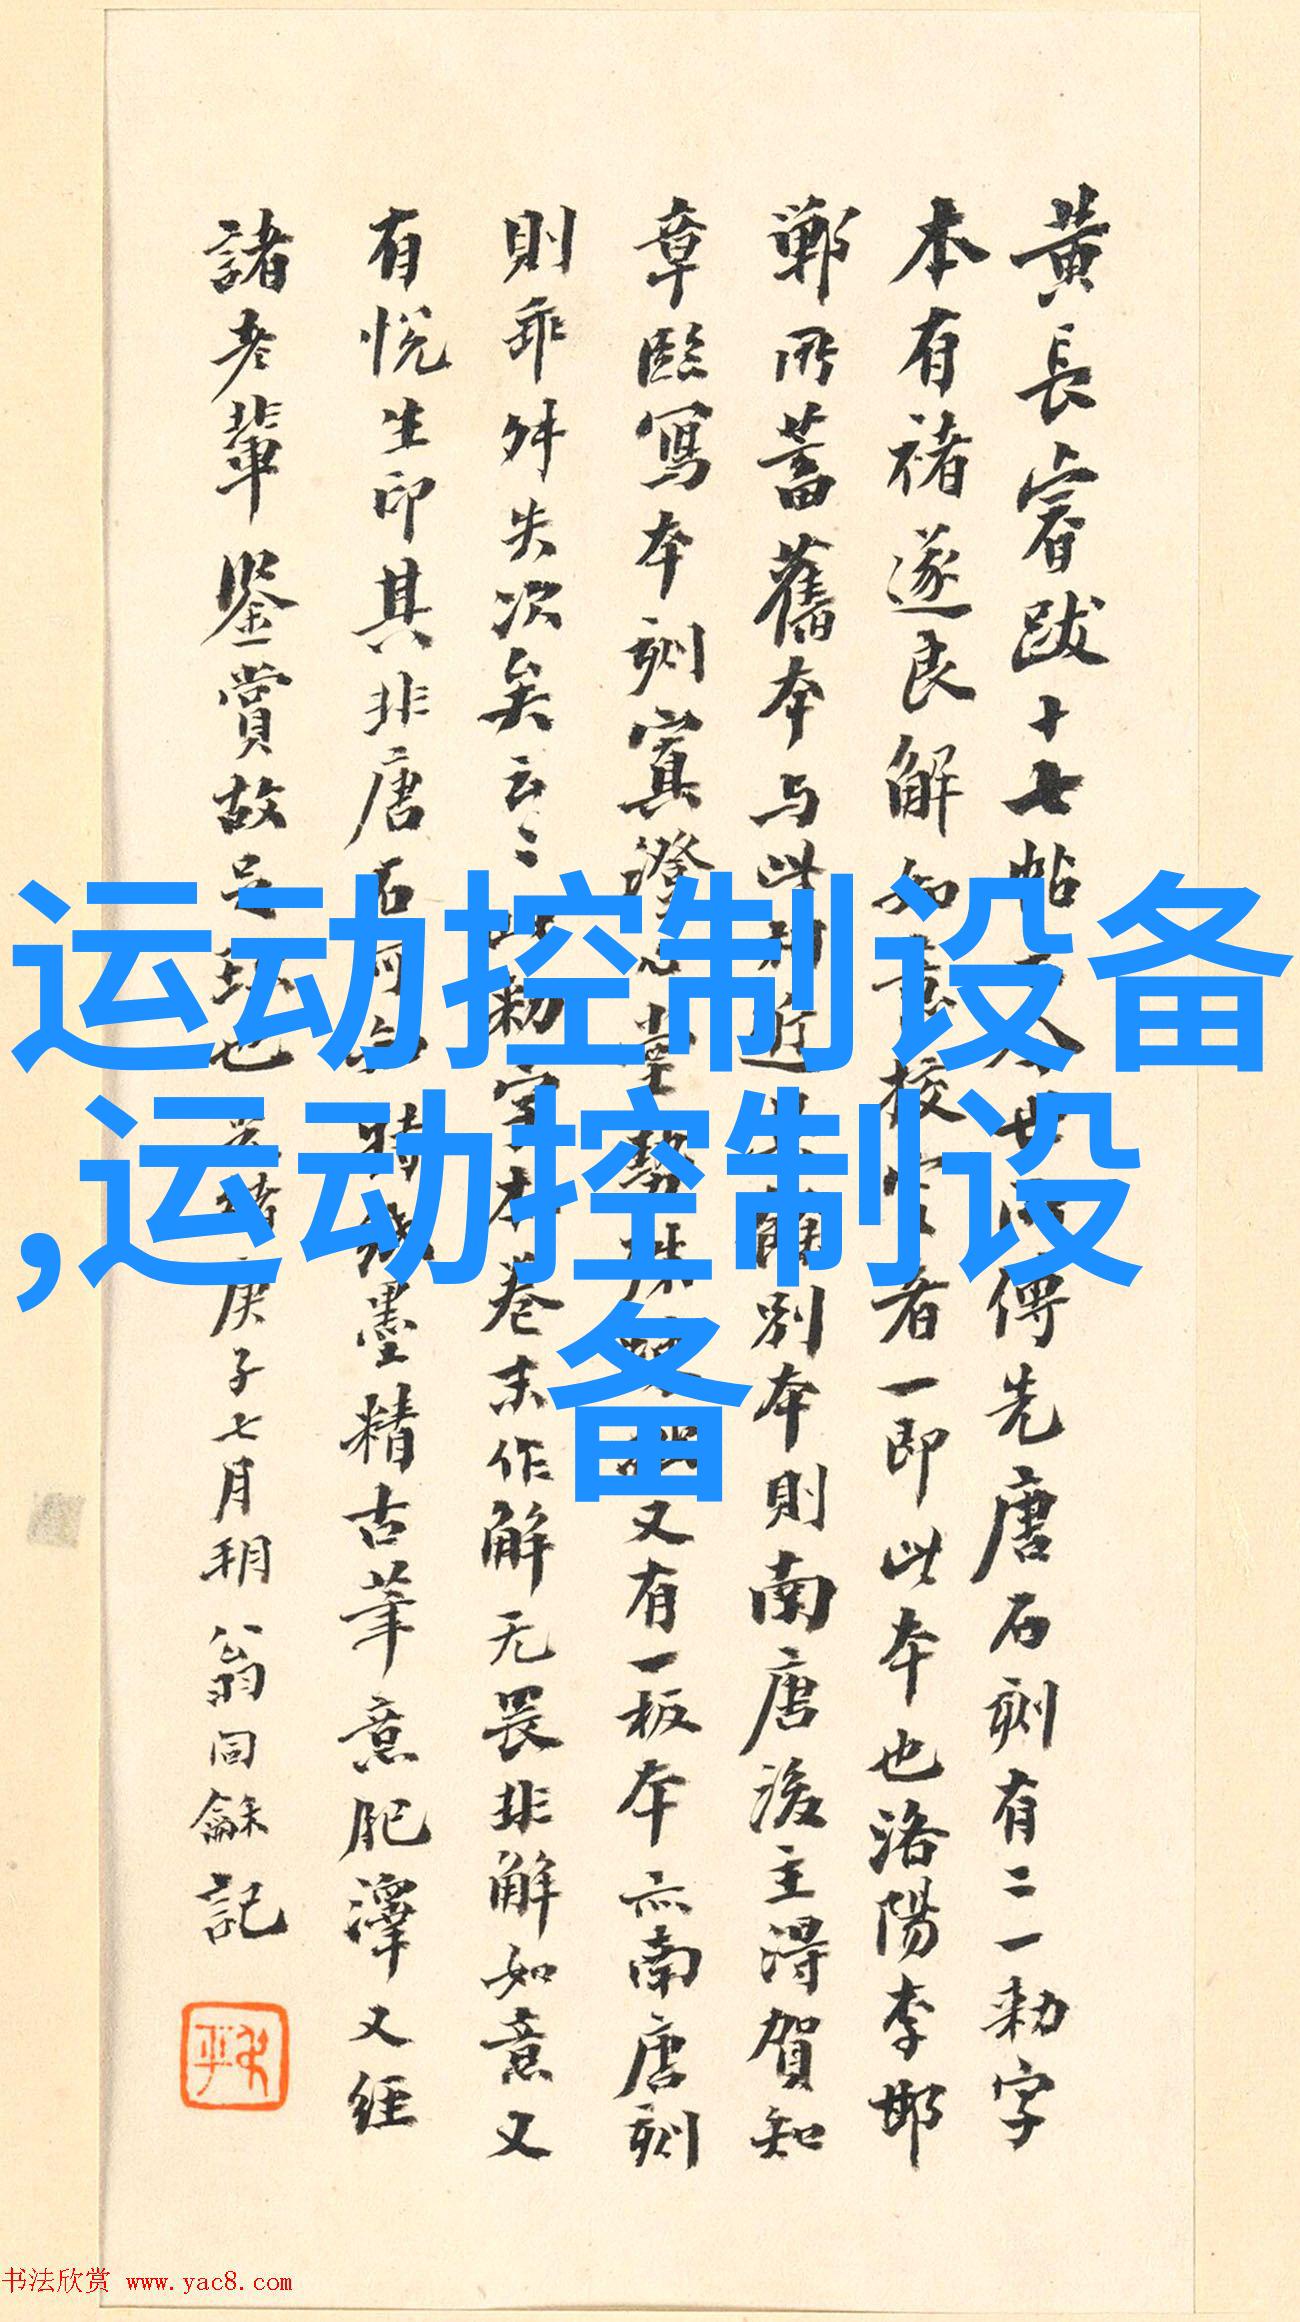 黄長睿跋十七帖
傳先唐石刻有二一勅字
本有褚遂良解如意校定者一即此本也洛陽李邯
鄲所蓄舊本与此
別本則南唐後主得賀知
章臨寫本刻寘澄
又有一板本亦南唐刻
則乖舛失次矣云〻
勅字本卷末作解无畏非解如意又
有悦生印其非唐石
墨精古筆意肥澤又经
諸老輩鑒賞故足珍也
庚子七月朔翁同龢記
运动控制设备
,运动控制设
备
书法欣赏 www.yac8.com